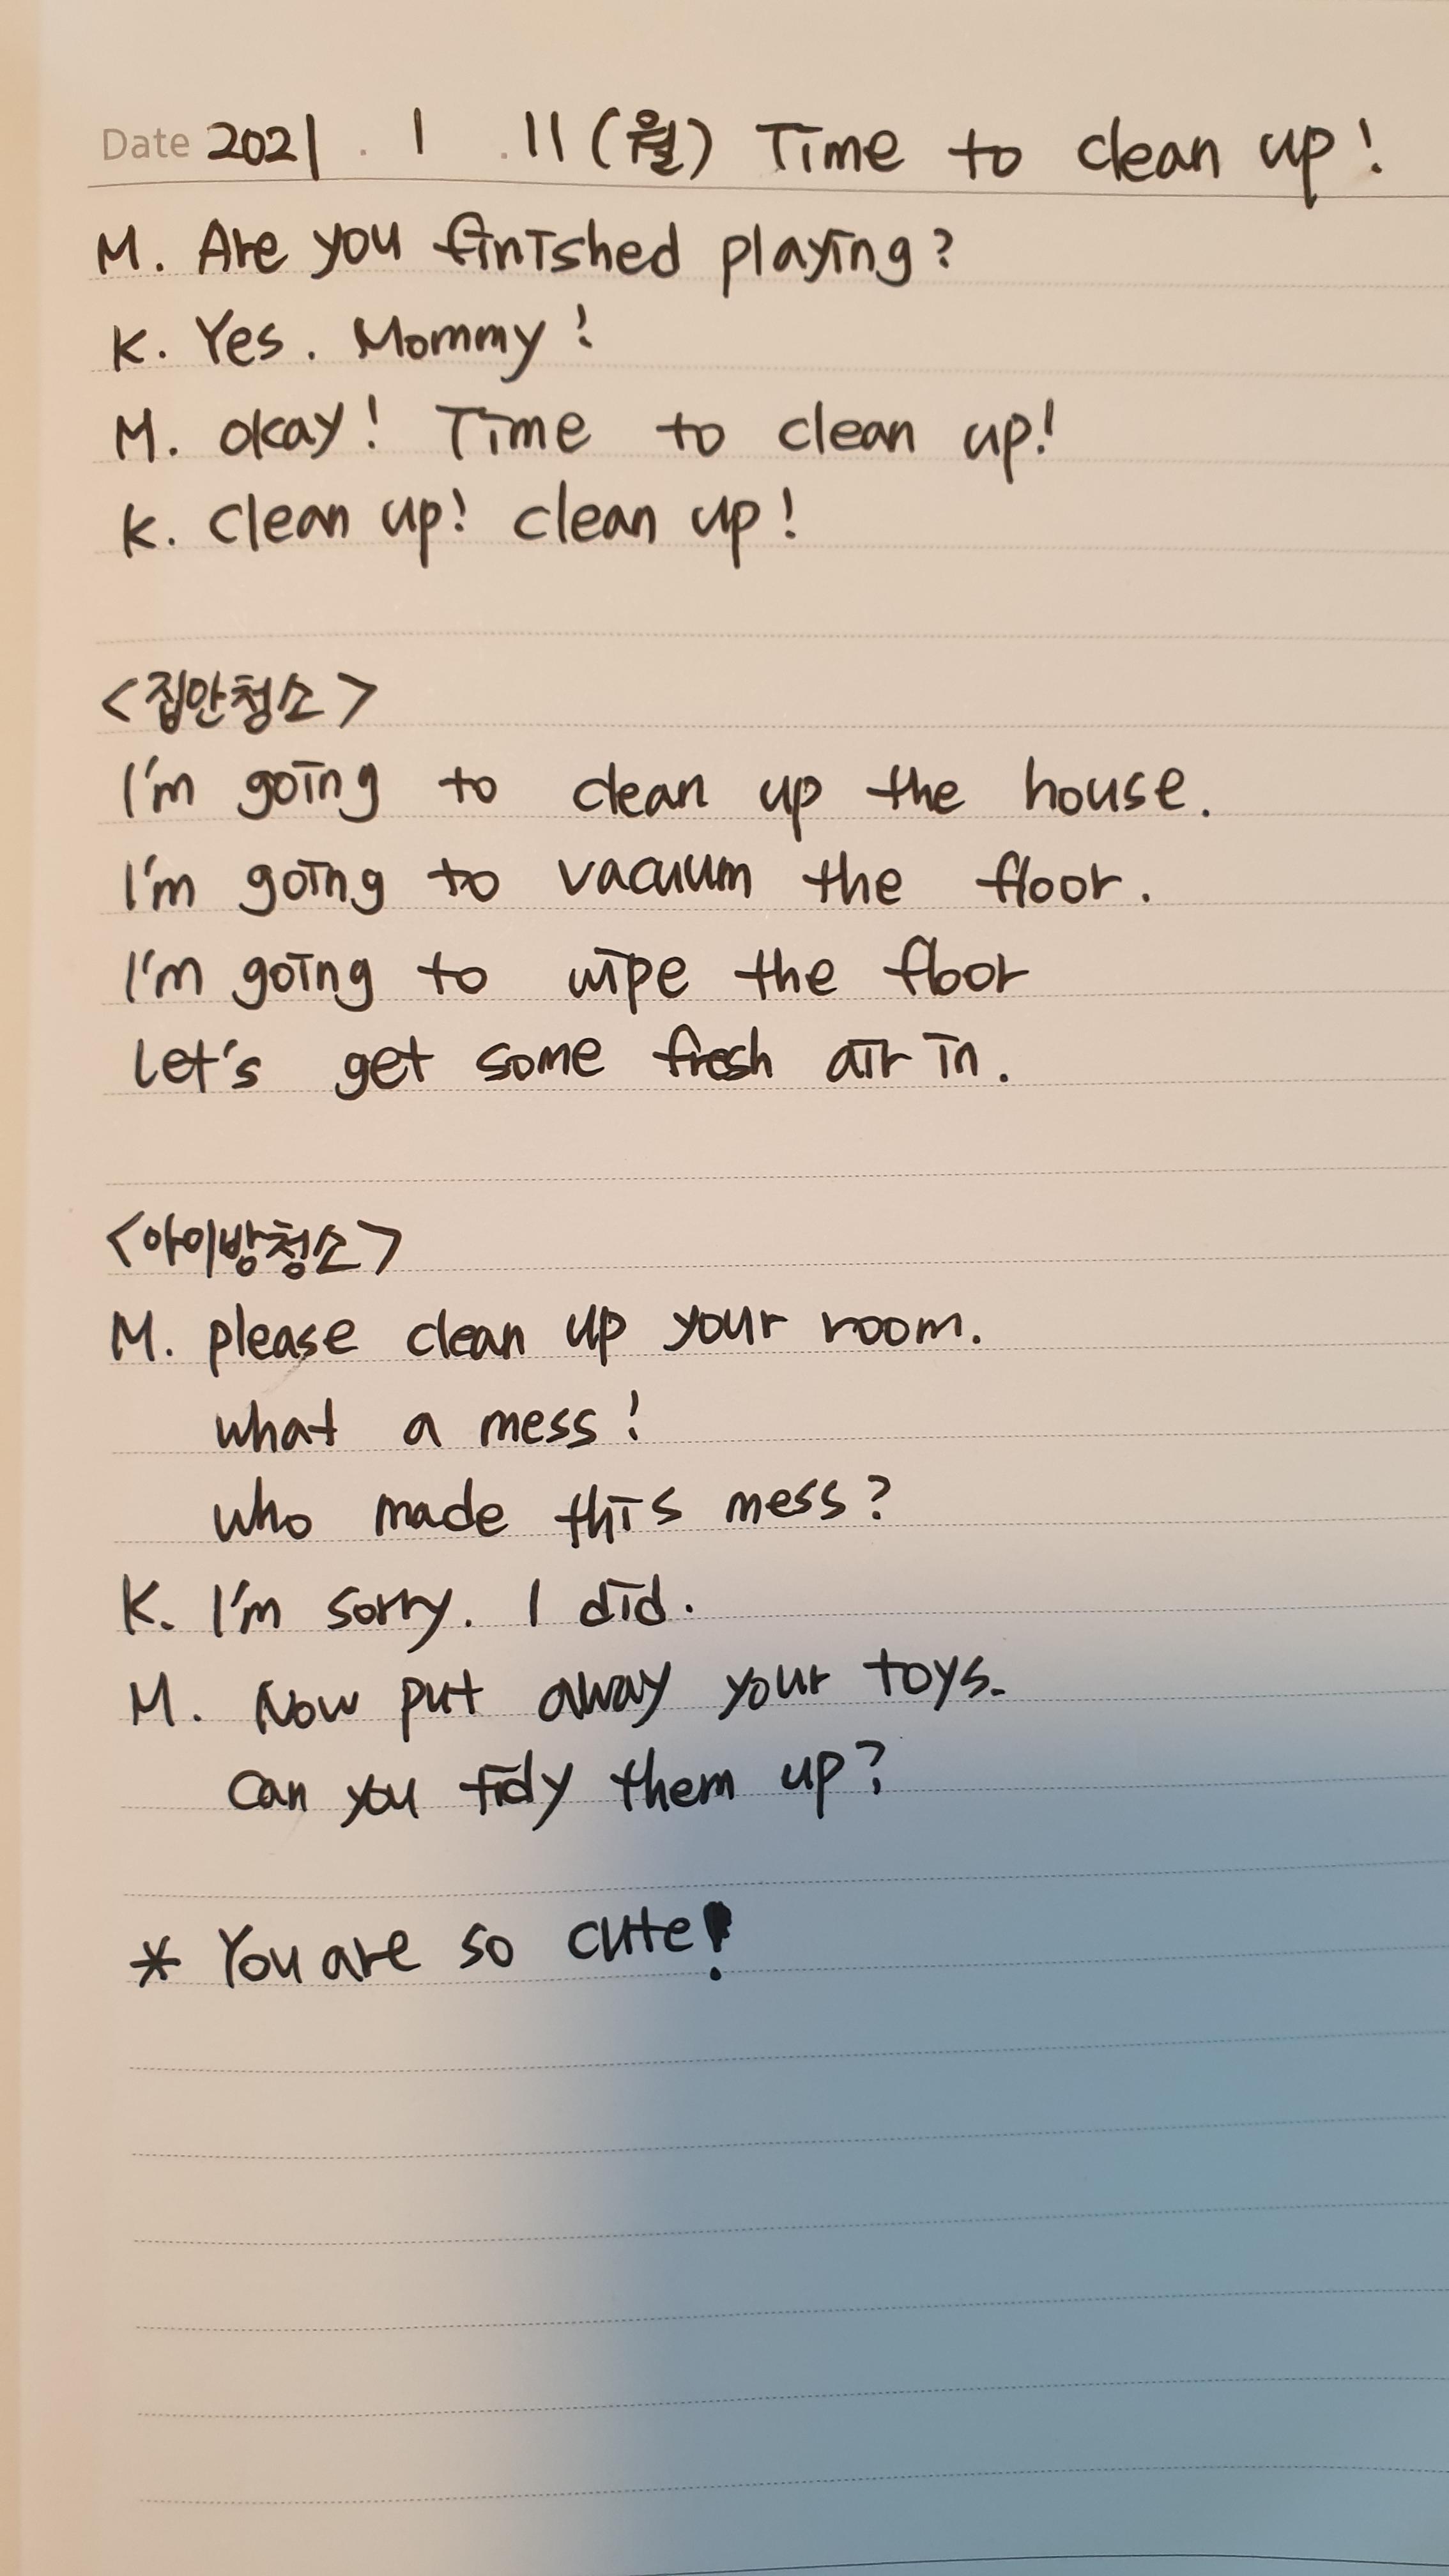 Date 2021 . 1 . 11 (월) Time to clean up!
M. Are you finished playing?
K. Yes. Mommy!
M. okay! Time to clean up!
K. clean up! clean up!
<집안청소>
I'm going to clean up the house.
I'm going to vacuum the floor.
I'm going to wipe the floor
Let's get some fresh air in.
<아이방청소>
M. please clean up your room.
what a mess!
who made this mess?
K. I'm sorry. I did.
M. Now put away your toys.
Can you tidy them up?
* You are so cute!